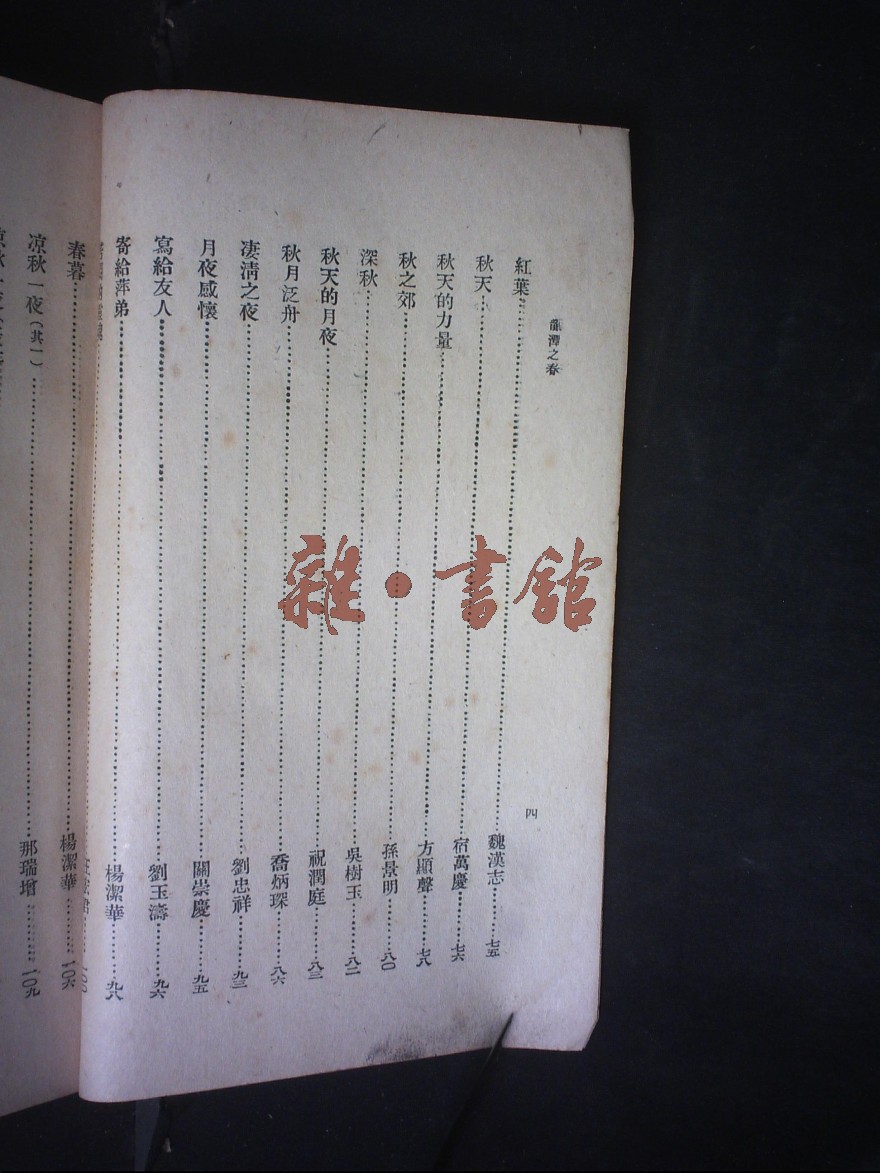 龍潭之春
四
紅葉……魏漢志……七五
秋天……宿萬慶……七六
秋天的力量……方顯聲……七八
秋之郊……孫景明……八〇
深秋……吳樹玉……八二
秋天的月夜……祝潤庭……八三
秋月泛舟……喬炳琛……八六
凄清之夜……劉忠祥……九三
月夜感懷……關崇慶……九五
寫給友人……劉玉濤……九六
寄給萍弟……楊潔華……九八
春暮……楊潔華……一〇六
凉秋一夜(其一)……那瑞增……一〇九
雜·書館